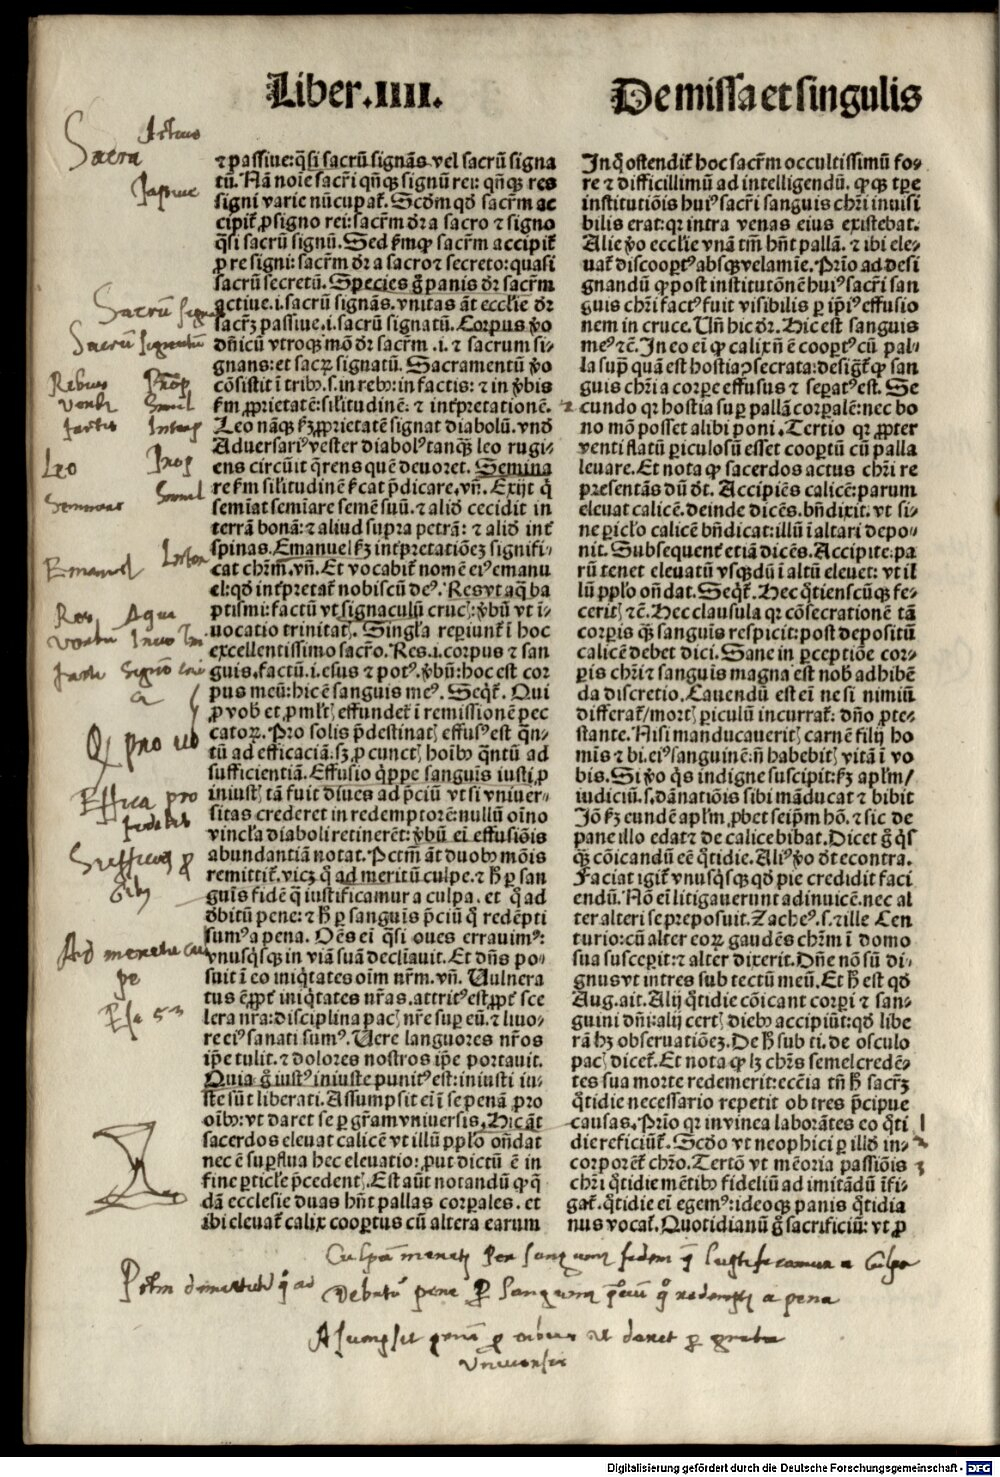 Liber.IIII.
De missa et singulis
⁊ passiue: q̄si sacrū signās vel sacrū signa
tū. Nā noīe sacr̄i qn̄qꝫ signū rei: qn̄qꝫ res
signi varie nūcupat̄. Scd̄m qd̄ sacr̄m ac
cipit̄ ꝓ signo rei: sacr̄m dr̄ a sacro ⁊ signo
q̄si sacrū signū. Sed ẜmqꝫ sacr̄m accipit̄
ꝓ re signi: sacr̄m dr̄ a sacro ⁊ secreto: quasi
sacrū secretū. Species g̊ panis dr̄ sacr̄m
actiue .i. sacrū signās. vnitas āt eccl̄ie dr̄
sacr̄ꝫ passiue .i. sacrū signatū. Corpus v̊o
dn̄icū vtroqꝫ mō dr̄ sacr̄m .i. ⁊ sacrum si-
gnans: et sacꝝ signatū. Sacramentū v̊o
cōsistit ī tribꝰ .s. in rebꝰ: in factis: ⁊ in v̊bis
ẜm ꝓprietatē: sil̄itudinē: ⁊ int̄pretationē.
Leo nāqꝫ ẜꝫ ꝓprietatē signat diabolū. vnd̄
Aduersariꝰ vester diabolꝰ tanqꝫ leo rugi-
ens circūit q̄rens quē deuoret. Semina
re ẜm sil̄itudinē ẜcat p̄dicare. vn̄. Exijt q̄
semīat semīare semē suū. ⁊ aliđ cecidit in
terrā bonā: ⁊ aliud supra petrā: ⁊ aliđ int̄
spinas. Emanuel ẜꝫ int̄pretatiōeꝫ signifi-
cat chr̄m. vn̄. Et vocabit̄ nomē eiꝰ emanu
el: qd̄ int̄pretat̄ nobiscū deꝰ. Res vt aq̄ ba
ptismi: factū vt signaculū crucꝭ: v̊bū vt ī-
uocatio trinitatꝭ. Singl̄a reꝑiunt̄ ī hoc
excellentissimo sacr̄o. Res .i. corpus ⁊ san
guis. factū .i. esus ⁊ potꝰ. v̊bū: hoc est cor
pus meū: hic ē sanguis meꝰ. Seqt̄. Qui
ꝓ vob̄ et ꝓ ml̄tꝭ effundet̄ ī remissionē pec
catoꝝ. Pro solis p̄destinatꝭ effusꝰ est qn̄-
tū ad efficaciā: sꝫ ꝓ cunctꝭ hoībꝰ qn̄tū ad
sufficientiā. Effusio q̄ppe sanguīs iusti ꝓ
iniustꝭ tā fuit diues ad p̄ciū vt si vniuer-
sitas crederet in redemptorē: nullū oīno
vincl̄a diaboli retinerēt: v̊bū eī effusiōis
abundantiā notat. Pctm̄ āt duobꝰ mōis
remittit̄. vicꝫ q̄ ad meritū culpe. ⁊ h̄ ꝑ san
guīs fidē q̄ iustificamur a culpa. et q̄ ad
dꝫbitū pene: ⁊ h̄ ꝑ sanguīs p̄ciū q̄ redēpti
sumꝰ a pena. Oēs eī q̄si oues errauimꝰ:
vnusq̄sqꝫ in viā suā decliauit. Et dn̄s po-
suit ī eo iniq̄tates oīm nr̄m. vn̄. Vulnera
tus ē ꝓpt̄ iniq̄tates nr̄as. attritꝰ est ꝓpt̄ sce
lera nr̄a: disciplina pacꝭ nr̄e suꝑ eū. ⁊ liuo-
re eiꝰ sanati sumꝰ. Vere languores nr̄os
ip̄e tulit. ⁊ dolores nostros ip̄e portauit.
Quia g̊ iustꝰ iniuste punitꝰ est: iniusti iu-
ste sūt liberati. Assumpsit eī ī se penā ꝓ ꝓ
oībꝰ: vt daret se ꝑ gr̄am vniuersis. Hic āt
sacerdos eleuat calicē vt illū ppl̄o on̄dat
nec ē suꝑflua hec eleuatio: ꝓut dictū ē in
fine ꝑticl̄e p̄cedentꝭ. Est aūt notandū qꝫ q̄
dā ecclesie duas hn̄t pallas corꝑales. et
ibi eleuat̄ calix cooꝑtus cū altera earum
In q̊ ostendit̄ hoc sacr̄m occultissimū fo-
re ⁊ difficillimū ad intelligendū. qꝫqꝫ tꝑe
institutiōis huiꝰ sacr̄i sanguis chr̄i inuisi
bilis erat: qꝛ intra venas eius existebat.
Alie v̊o eccl̄ie vnā tm̄ hn̄t pallā. ⁊ ibi ele-
uat̄ discooptꝰ absqꝫ velamīe. Prīo ad desi
gnandū qꝫ post institutōnē huiꝰ sacr̄i san
guis chr̄i factꝰ fuit visibilis ꝑ ip̄iꝰ effusio
nem in cruce. Vn̄ hic dr̄. Hic est sanguis
meꝰ ⁊c̄. In eo eī qꝫ calix nō ē cooptꝰ cū pal-
la suꝑ quā est hostia ꝯsecrata: desigt̄ qꝫ san
guis chr̄i a corꝑe effusus ⁊ seꝑatꝰ est. Se
cundo qꝛ hostia suꝑ pallā corꝑalē: nec bo
no mō posset alibi poni. Tertio qꝛ ꝓpter
venti flatū ꝑiculosū esset cooptū cū palla
leuare. Et nota qꝫ sacerdos actus chr̄i re
presentās dū dt̄. Accipiēs calicē: parum
eleuat calicē. deinde dicēs. bn̄dixit. vt si-
ne ꝑicl̄o calicē bn̄dicat: illū ī altari depo-
nit. Subsequent̄ etiā dicēs. Accipite: pa
rū tenet eleuatū vsqꝫdū ī altū eleuet: vt il
lū ppl̄o on̄dat. Seqt̄. Hec q̄tienscūqꝫ fe-
ceritꝭ ⁊c̄. Hec clausula qꝛ cōsecrationē tā
corꝑis qꝫ sanguīs respicit: post depositū
calicē debet dici. Sane in ꝑceptiōe cor-
ꝑis chr̄i ⁊ sanguīs magna est nob̄ adhibē
da discretio. Cauendū est eī ne si nimiū
differat̄/mortꝭ ꝑiculū incurrat̄: dn̄o ꝓte-
stante. Nisi manducaueritꝭ carnē filij ho
mīs ⁊ bi. eiꝰ sanguinē: n̄ habebitꝭ vitā ī vo
bis. Si v̊o q̄s indigne suscipit: ẜꝫ apl̄m/
iudiciū .s. dānatiōis sibi māducat ⁊ bibit
Iō ẜꝫ eundē apl̄m ꝓbet seip̄m hō. ⁊ sic de
pane illo edat ⁊ de calice bibat. Dicet g̊ q̄s
qꝫ cōicandū eē q̄tidie. Aliꝰ v̊o dt̄ econtra.
Faciat igit̄ vnusq̄sqꝫ qd̄ pie credidit faci
endū. Nō eī litigauerunt adinuicē. nec al
ter alteri se preposuit. Zacheꝰ .s. ⁊ ille Cen
turio: cū alter eoꝝ gaudēs chr̄m ī domo
sua susceꝑit: ⁊ alter dixerit. Dn̄e nō sū di-
gnus vt intres sub tectū meū. Et h̄ est qd̄
Aug. ait. Alij q̄tidie cōicant corꝑi ⁊ san-
guini dn̄i: alij certꝭ diebꝰ accipiūt: qd̄ libe
rā hꝫ obseruatiōeꝫ. De h̄ sub ti. de osculo
pacꝭ dicet̄. Et nota qꝫ lꝫ chr̄s semel credē-
tes sua morte redemerit: eccīa tn̄ h̄ sacr̄ꝫ
q̄tidie necessario repetit ob tres p̄cipue
causas. Prīo qꝛ in vinea laborātes eo q̄ti
die reficiūt̄. Scd̄o vt neophici ꝑ illđ in-
corporēt̄ chr̄o. Tertō vt mēoria passiōis
chr̄i q̄tidie mētibꝰ fideliū ad imitādū īfi-
gat̄. q̄tidie eī egemꝰ: ideoqꝫ panis q̄tidia
nus vocat̄. Quotidianū g̊ sacrificiū: vt ꝓ
Sacra
Sacrū signatū
Rebus Prop
Simil
Leo Prop
Simil
Emanuel
Res Aqua
Qꝫ pro vob
Effica pro
Ad meritū cul
pe
Esa 53
2
3
Culpā meritū per sanguinis fidem qͣ Iustificamur a Culpa
Debitū pene ꝑ Sanguinis p̄ciū qͦ redempti a pena
Assumpsit penā ꝓ oibus ut daret se per gratia
Vniuersis
Digitalisierung gefördert durch die Deutsche Forschungsgemeinschaft - DFG